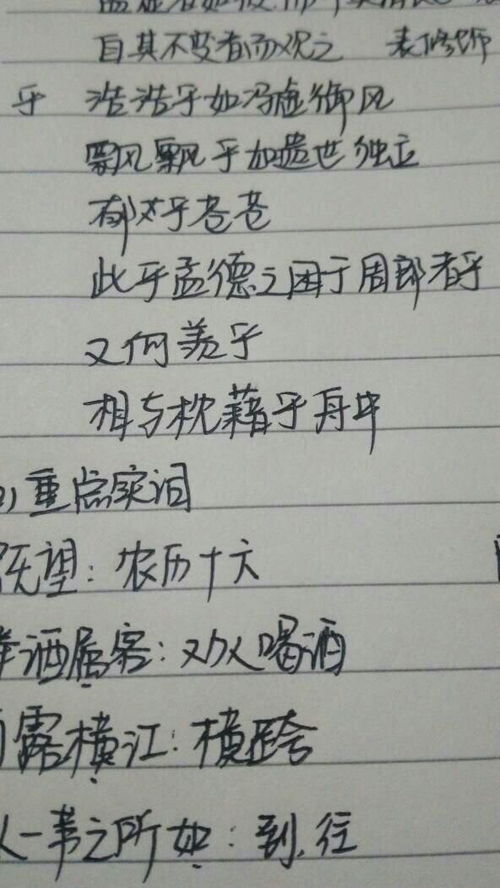 自其不变者而观之 表修饰
乎 浩浩乎如冯虚御风
飘飘乎如遗世独立
郁郁乎苍苍
此乎孟德之困于周郎者乎
又何羡乎
相与枕藉乎舟中
重点实词
既望:农历十六
酒属客:劝人喝酒
露横江:横跨
一苇之所如:到,往